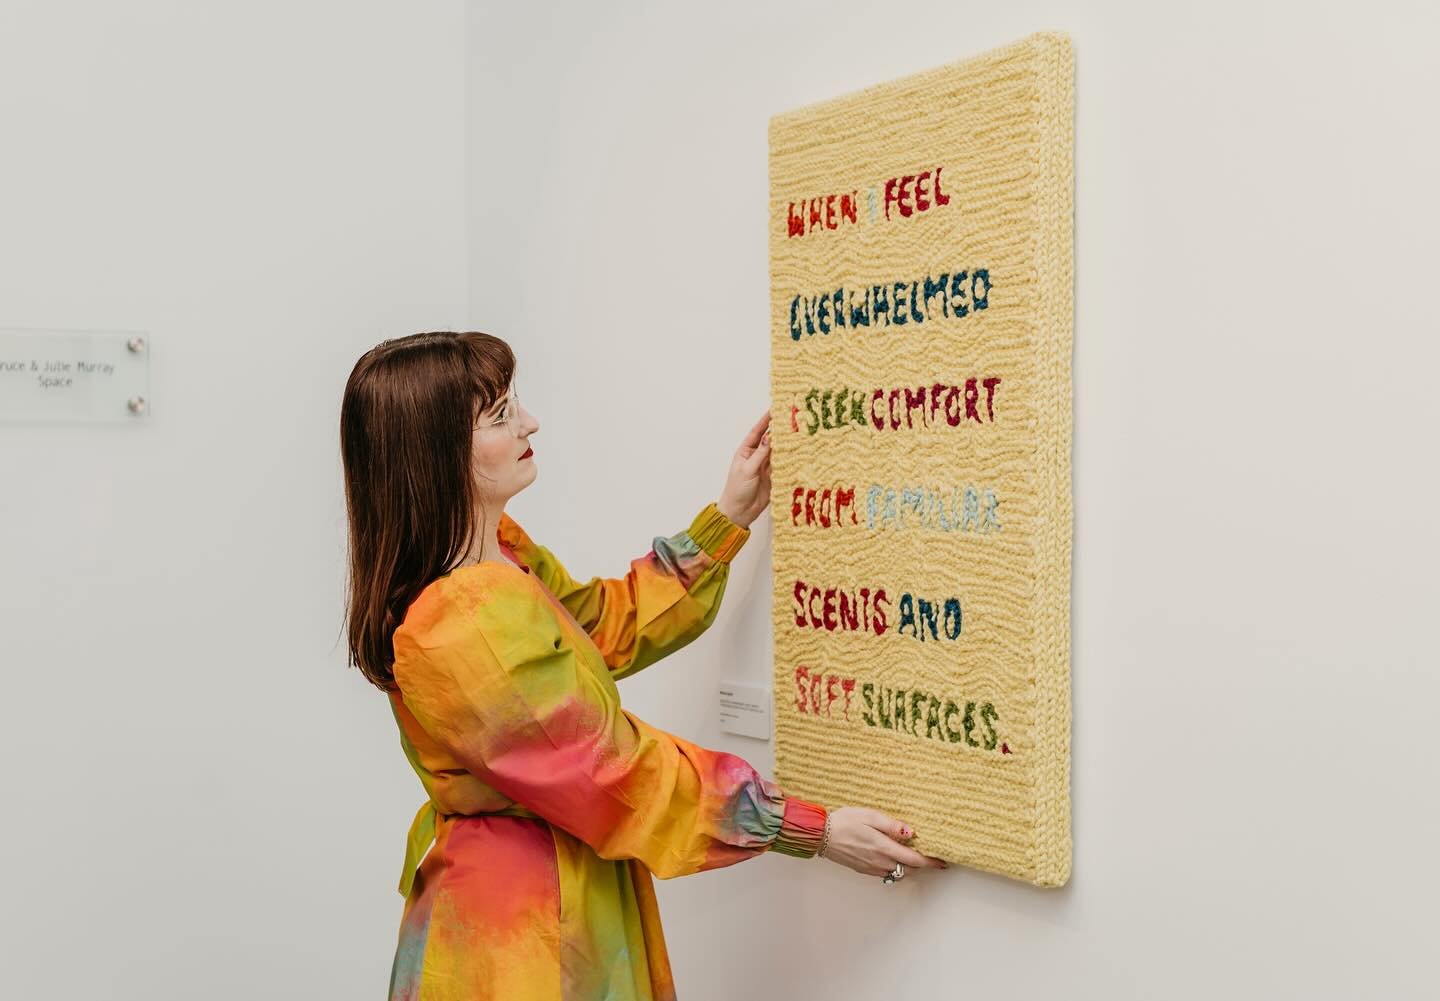 ruce & Julie Murray
Space
WHEN I FEEL
OVERWHELMED
I SEEK COMFORT
FROM FAMILIAR
SCENTS AND
SOFT SURFACES.